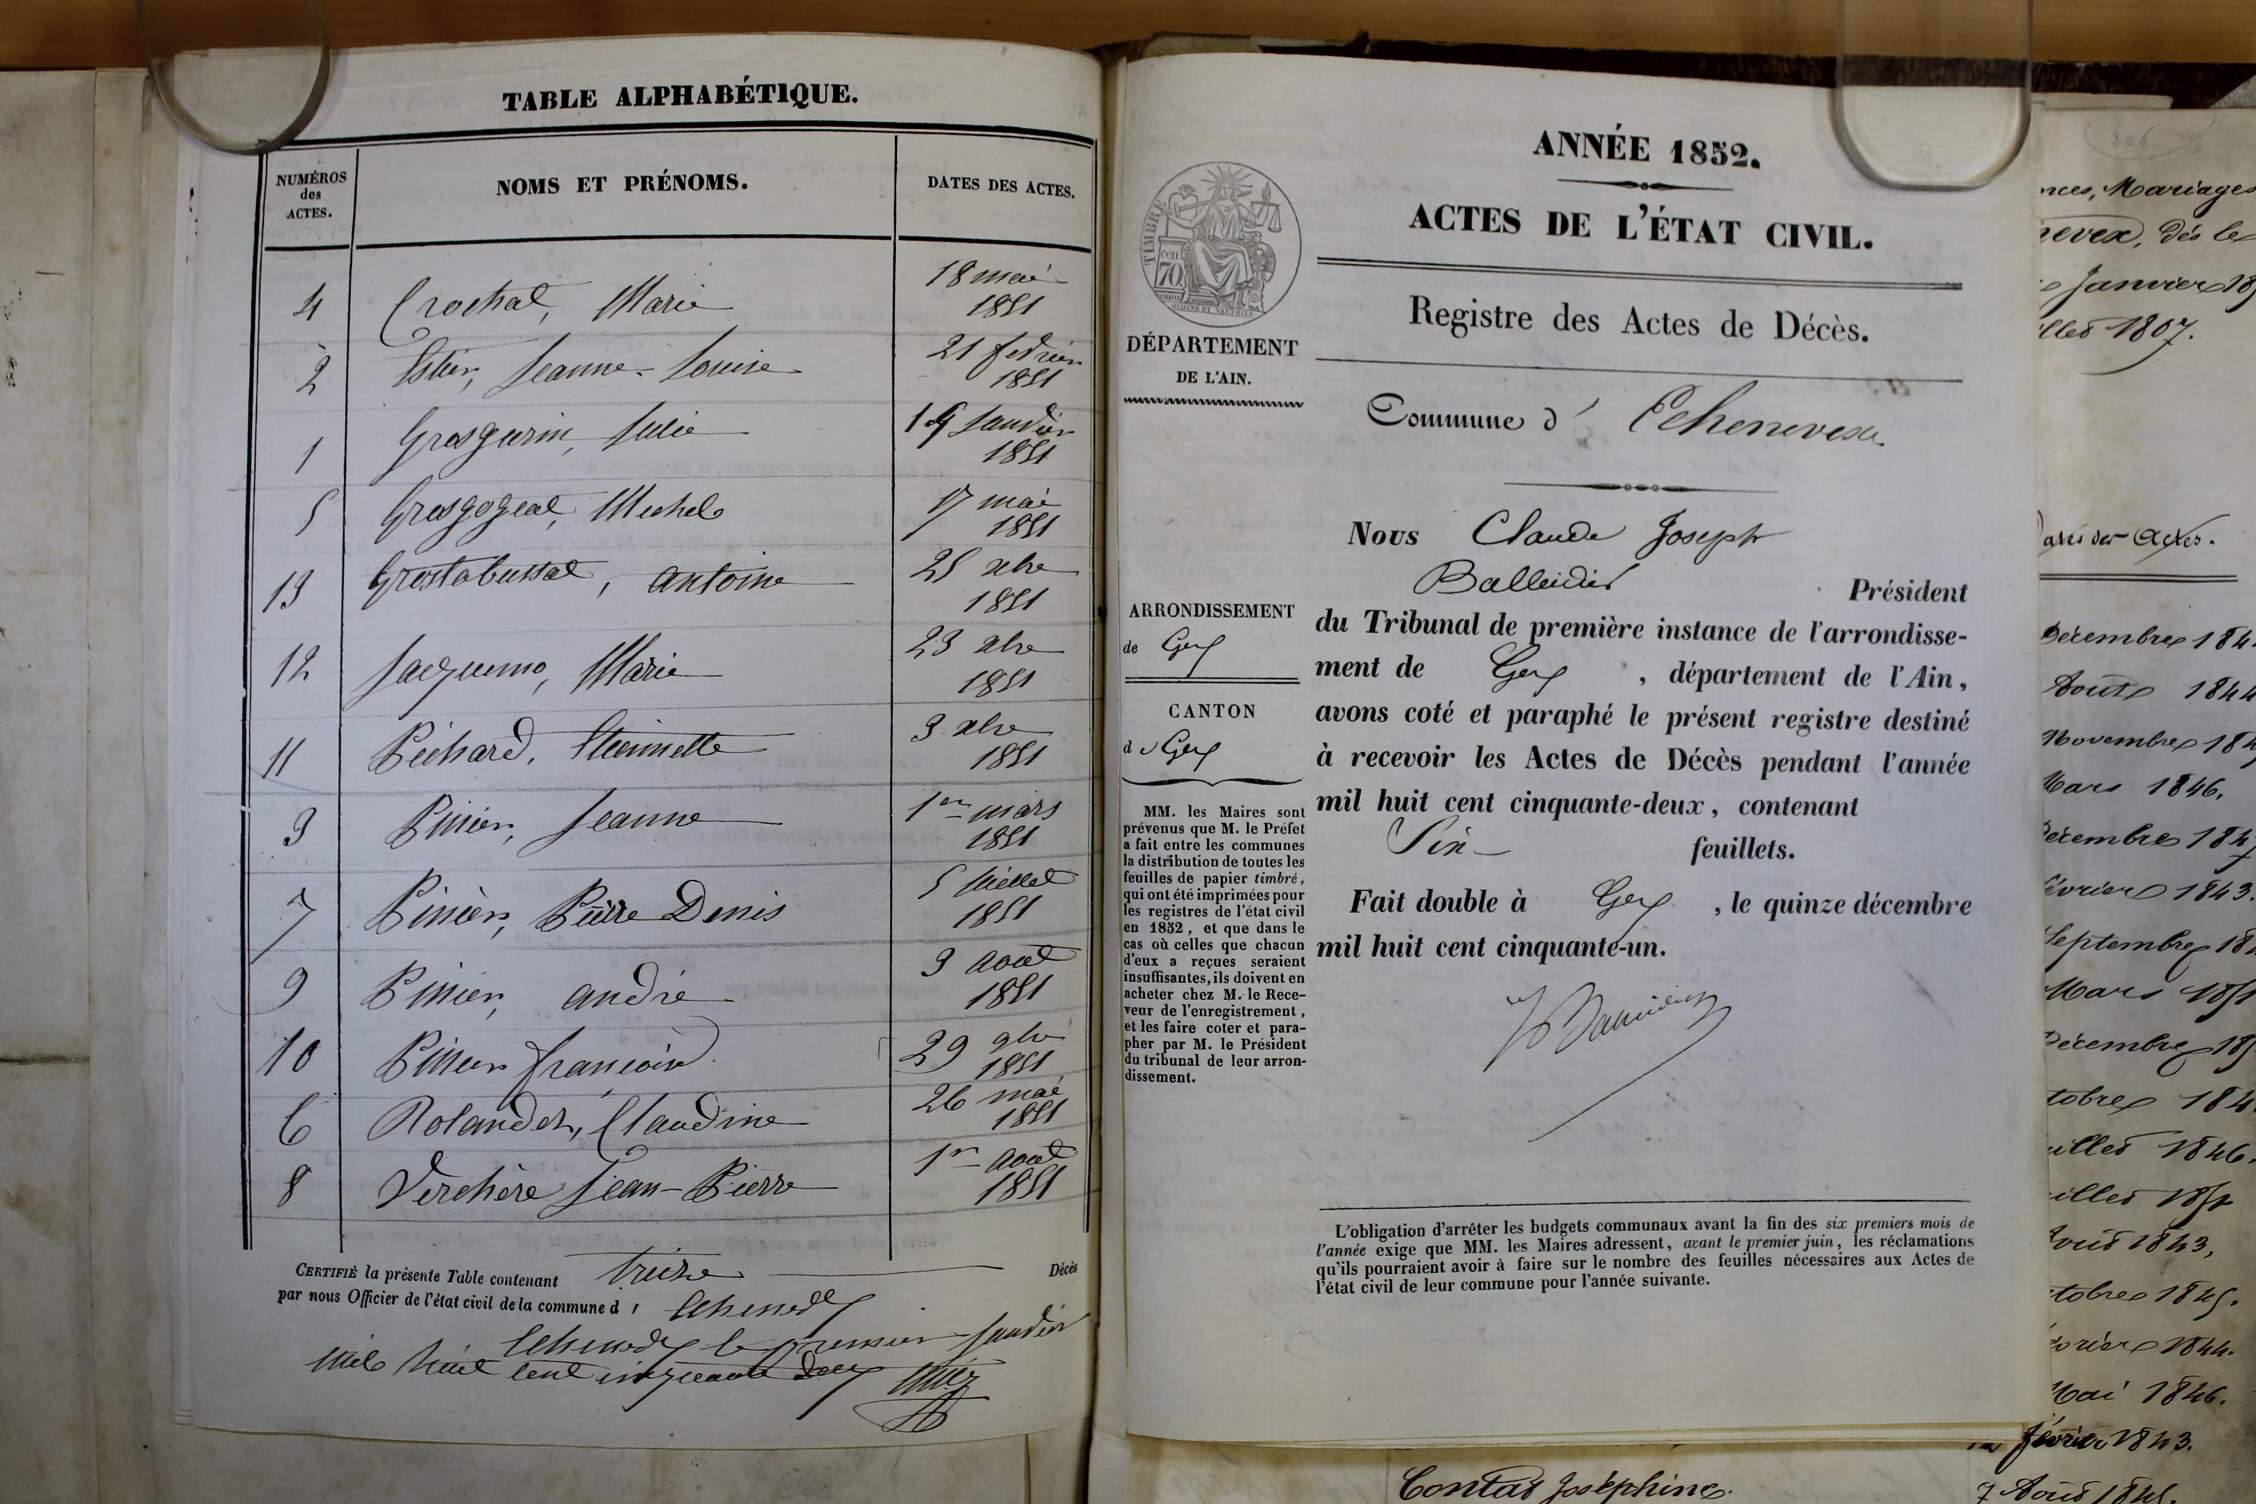 TABLE ALPHABÉTIQUE.
NUMÉROS
des
ACTES.
NOMS ET PRÉNOMS.
DATES DES ACTES.
4 Crochat, Marie 18 mai
1851
2 Estier, Jeanne-Louise 21 fevrier
1851
1 Grosgurin, Julie 19 Janvier
1851
5 Grosgogeat, Michel 17 mai
1851
13 Grostabussat, antoine 25 xbre
1851
12 Jacquemo, Marie 23 xbre
1851
11 Péchard, Etiennette 3 xbre
1851
3 Pinier, Jeanne 1er mars
1851
7 Pinier, Pierre Denis 5 Juillet
1851
9 Pinier, andré 3 aout
1851
10 Pinier françois 29 9bre
1851
6 Rolandez, Claudine 26 mai
1851
8 Verchère Jean-Pierre 1er aout
1851
CERTIFIÉ la présente Table contenant treize Décès
par nous Officier de l'état civil de la commune d' Echenevex
Echenevex le premier Janvier
mil huit cent cinquante deux
ANNÉE 1852.
ACTES DE L'ÉTAT CIVIL.
Registre des Actes de Décès.
TIMBRE
70 cen
DÉPARTEMENT
DE L'AIN.
Commune d' Echenevex
Nous Claude Joseph
Balleidier Président
du Tribunal de première instance de l'arrondisse-
ment de Gex, département de l'Ain,
avons coté et paraphé le présent registre destiné
à recevoir les Actes de Décès pendant l'année
mil huit cent cinquante-deux, contenant
Six feuillets.
Fait double à Gex, le quinze décembre
mil huit cent cinquante-un.
ARRONDISSEMENT
de Gex
CANTON
de Gex
MM. les Maires sont
prévenus que M. le Préfet
a fait entre les communes
la distribution de toutes les
feuilles de papier timbré,
qui ont été imprimées pour
les registres de l'état civil
en 1852, et que dans le
cas où celles que chacun
d'eux a reçues seraient
insuffisantes, ils doivent en
acheter chez M. le Rece-
veur de l'enregistrement,
et les faire coter et para-
pher par M. le Président
du tribunal de leur arron-
dissement.
L'obligation d'arrêter les budgets communaux avant la fin des six premiers mois de
l'année exige que MM. les Maires adressent, avant le premier juin, les réclamations
qu'ils pourraient avoir à faire sur le nombre des feuilles nécessaires aux Actes de
l'état civil de leur commune pour l'année suivante.
206
nces, Mariages
nevex, dès le
Janvier 18
illet 1807.
ates des Actes.
Décembre 184
Août 1844
Novembre 184
Mars 1846.
Décembre 184
février 1843.
Septembre 184
Mars 185
Décembre 18
tobre 184
uillet 1846.
uillet 185
Août 1843,
ctobre 1845.
évrier 1844.
Mai 1846.
février 1843.
Contat Joséphine. 7 Août 1845.